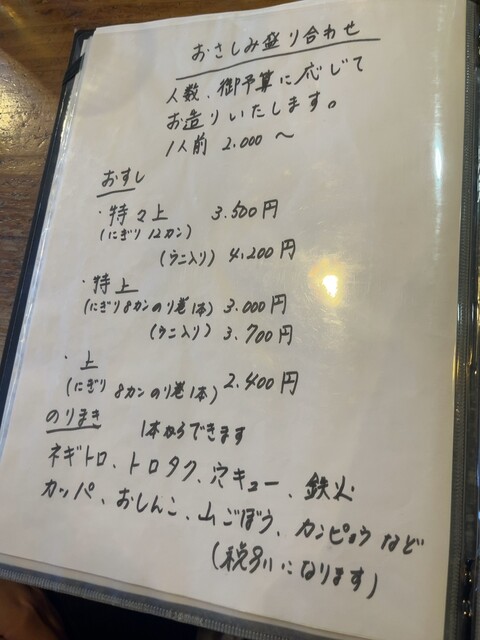 おさしみ盛り合わせ
人数、御予算に応じて
お造りいたします。
1人前 2.000〜
おすし
・特々上 3.500円
(にぎり12カン)
(ウニ入り) 4,200円
・特上
(にぎり8カンのり巻1本) 3.000円
(ウニ入り) 3.700円
・上
(にぎり8カンのり巻1本) 2.400円
のりまき 1本からできます
ネギトロ、トロタク、穴キュー、鉄火
カッパ、おしんこ、山ごぼう、カンピョウなど
(税別になります)